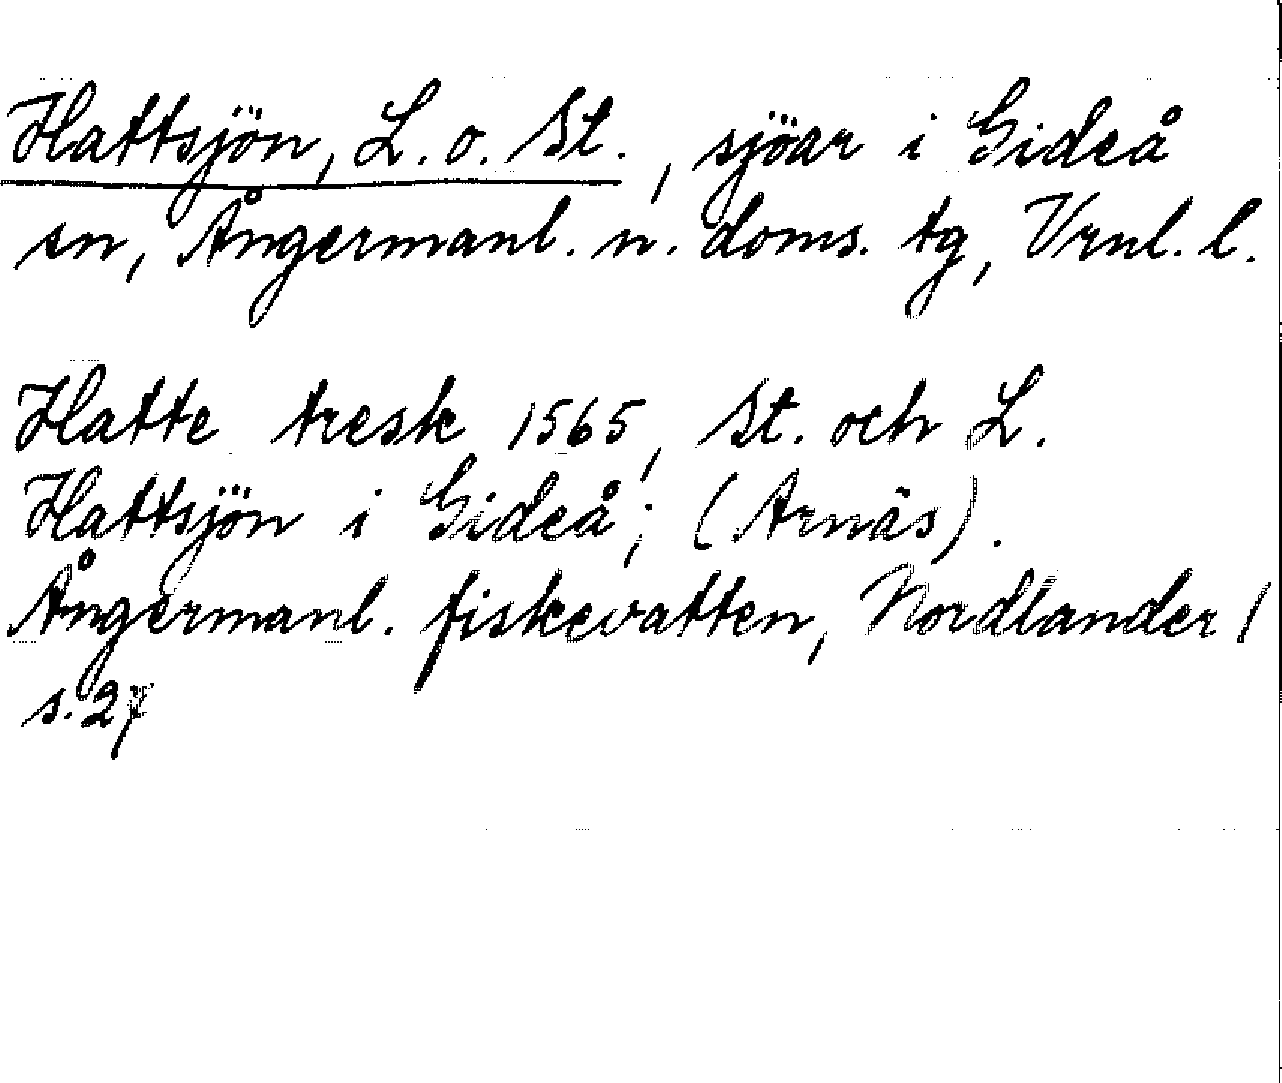 Hattsjön, L. o. St., sjöar i Gideå
sn, Ångermanl. n. doms. tg, Vrnl. l.
Hatte tresk 1565, St. och L.
Hattsjön i Gideå; (Arnäs).
Ångermanl. fiskevatten, Nordlander I
s. 27